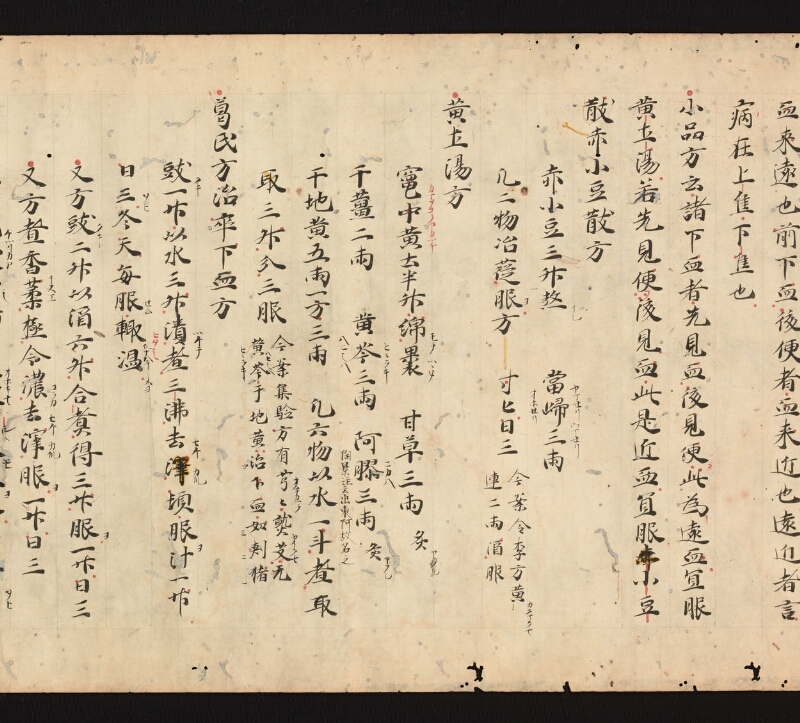 血来遠也前下血後便者血来近也遠近者言
病在上焦下焦也
小品方云諸下血者先見血後見便此為遠血宜服
黄土湯若先見便後見血此是近血宜服赤小豆
散赤小豆散方
赤小豆三升熬 當歸三兩
凡二物冶筵服方寸匕日三 今案令李方黄
連二兩酒服
黄土湯方
竈中黄土半升綿裹 甘草三兩炙
干薑二兩 黄芩三兩 阿膠三兩炙
干地黄五兩一方三兩 凡六物以水一斗煮取
取三升分三服 今案集驗方有芎々熬艾无
黄芩干地黄治下血如刾猪
葛氏方治卒下血方
豉一升以水三升漬煮三沸去滓頓服汁一升
日三冬天每服輙温
又方豉二升以酒六升合煮得三升服一升日三
又方煮香薷極令濃去滓服一升日三